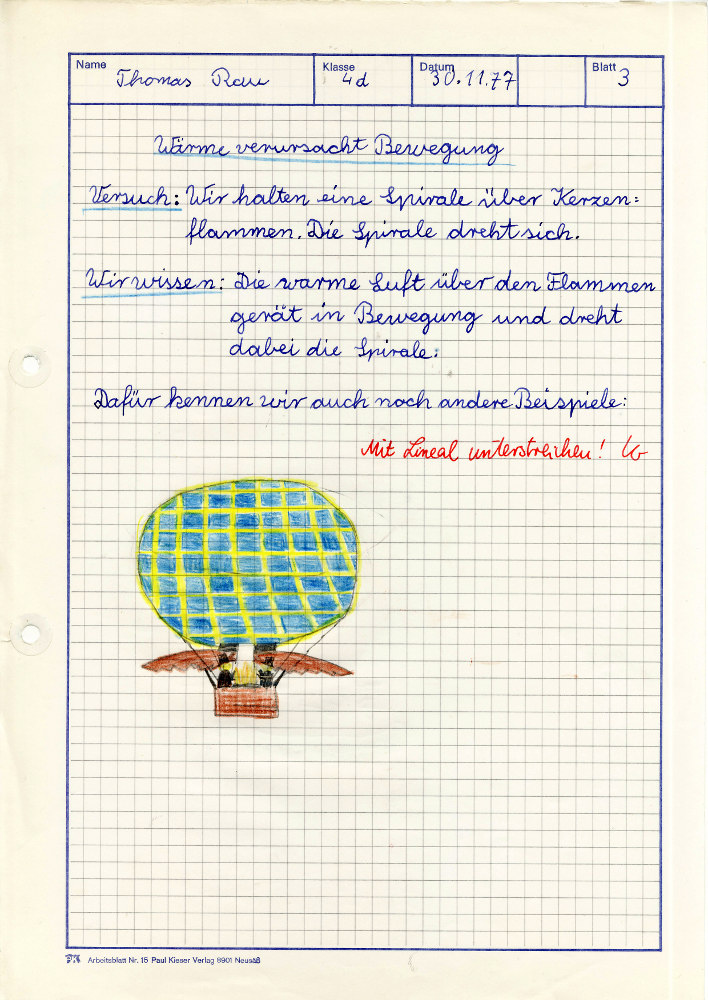 Name Thomas Rau Klasse 4d Datum 30.11.77 Blatt 3
Wärme verursacht Bewegung
Versuch: Wir halten eine Spirale über Kerzen=
flammen. Die Spirale dreht sich.
Wir wissen: Die warme Luft über den Flammen
gerät in Bewegung und dreht
dabei die Spirale.
Dafür kennen wir auch noch andere Beispiele:
Mit Lineal unterstreichen!
Arbeitsblatt Nr. 15 Paul Kieser Verlag 8901 Neusäß